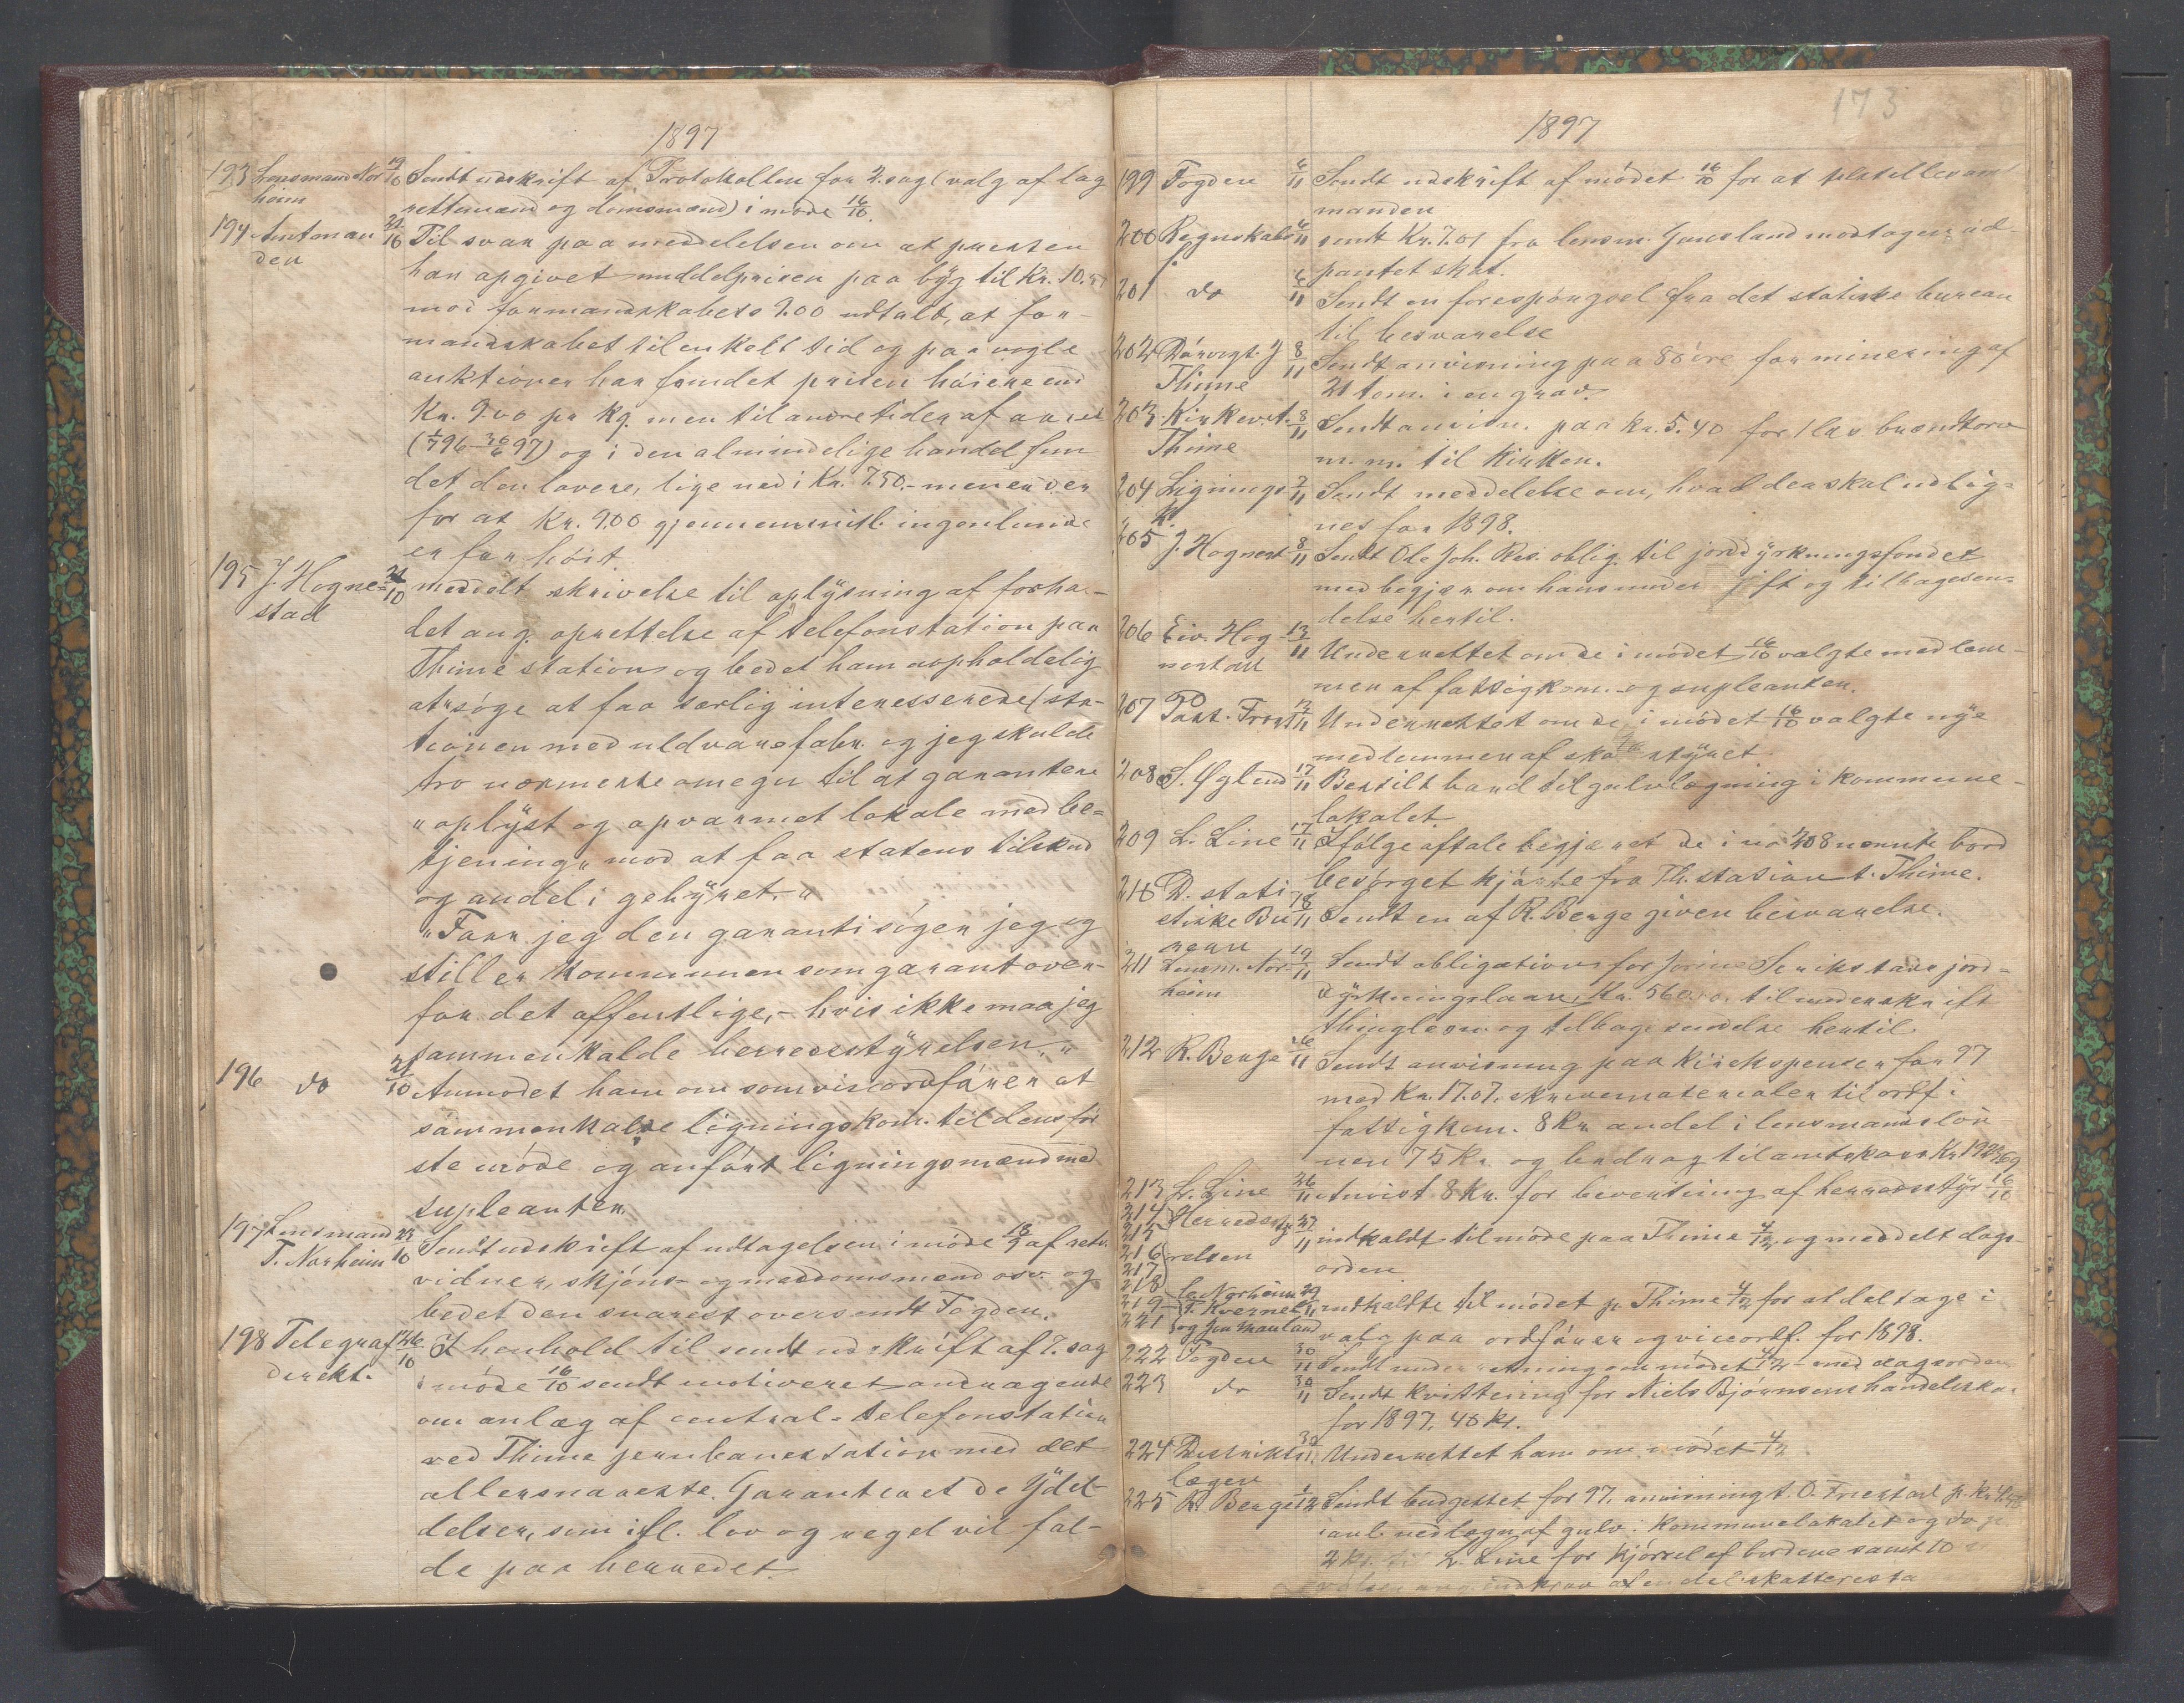 1897
193 Lensmand Nor 19/10 Sendt udskrift af Protokollen for 2. sag (valg af lag
heim rettemænd og domsmænd) i møde 16/10.
194 Amtman 21/10 Til svar paa meddelelsen om at presten
den har opgivet middelprisen paa byg til Kr. 10.
mod formandskabets 9.00 udtalt, at for-
mandskabet til enkelt tid og paa nogle
auktioner har fundet prisen høiere end
Kr. 9.00 pr kg. men til andre tider af aaret
(1/7 96 - 30/6 97) og i den almindelige handel fun
det den lavere, lige ned i Kr. 7.50. - mener der
for at Kr. 9.00 gjennemsnitl. ingenlunde
er for høit.
195 J. Hogne- 21/10 meddelt skrivelse til oplysning af forha-
stad det ang. oprettelse af telefonstation paa
Thime station og bedet ham uopholdelig
at søge at faa særlig interesserede (sta-
tionen med uldvarefabr. og jeg skulde
tro nærmeste omegn til at garantere
"oplyst og opvarmet lokale med be-
tjening" mod at faa statens tilskud
og andel i gebyret."
"Faar jeg den garanti søger jeg og
stiller kommunen som garant over-
for det offentlige, - hvis ikke maa jeg
sammenkalde herredsstyrelsen."
196 do 21/10 Anmodet ham om som viceordfører at
sammenkalde ligningskom. til dens før
ste møde og anført ligningsmænd med
supleanter.
197 Lensmand 23/10 Sendt udskrift af udtagelsen i møde 18/9 af rets
T. Norheim vidner, skjøns- og meddomsmænd osv. og
bedet den snarest oversendt Fogden.
198 Telegraf 26/10 I henhold til sendt udskrift af 7. sag
direkt. i møde 16/10 sendt motiveret andragende
om anlæg af central-telefonstation
ved Thime jernbanestation med det
allersnareste. Garanteret de Ydel-
delser, som ifl. lov og regel vil fal-
de paa herredet.
173
1897
199 Fogden 6/11 Sendt udskrift af mødet 16/10 for at tilstilles amt
manden
200 Regnskabsf 6/11 sendt Kr. 7.01 fra lensm. Gunsland modtagen ud-
pantet skat.
201 do 6/11 Sendt en forespørgsel fra det statiske bureau
til besvarelse
202 J 8/11 Sendt anvisning paa 80 øre for minering af
Thime 21 tom. i en grav.
203 Kirkev.t. 8/11 Sendt anvisn. paa Kr. 5.40 for 1 læs brændtorv
Thime m.m. til Kirken.
204 Lignings- 7/11 Sendt meddelelse om, hvad der skal udlig-
k. nes for 1898.
205 J. Hognest 8/11 Sendt Ole Joh. Res. oblig. til jorddyrkningsfondet
med begjær om hans underskrift og tilbagesen-
delse hertil.
206 Eiv. Hog 13/11 Underrettet om de i mødet 16/10 valgte medlem-
nestad men af fattigkom. og supleanter.
207 Past. Frost 13/11 Underrettet om de i mødet 16/10 valgte nye
medlemmer af skolestyret.
208 S. Øglend 17/11 Bestilt bord til gulvlægning i kommune-
lokalet.
209 L. Line 17/11 Ifølge aftale begjæret de i no 208 nævnte bord
besørget kjørte fra Th. station t. Thime.
210 D. stati 18/11 Sendt en af R. Berge given besvarelse.
stiske Bu
reau
211 Lensm. Nor- 19/11 Sendt obligation for jord-
heim dyrkningslaan, Kr. 560.00 til underskrift
thinglesn og tilbagesendelse hertil.
212 R. Berge 26/11 Sendt anvisning paa Kirchspenser for 97
med Kr. 17.07, skrivematerialer til ordf i
fattigkom. 8 Kr. andel i lensmandsløn
nen 75 Kr og bidrag til amtskass. Kr.
213 L. Line 26/11 Anvist 8 Kr. for bevertning af herredsstyr 16/10
214
215 Herredssty 27/11 indkaldt til møde paa Thime 4/12 og meddelt dags-
216 relsen orden.
217
218
219 Norheim 29/11 indkaldte til mødet p. Thime 4/12 for at deltage i
221 T. Kvernel og Jon Mauland valg paa ordfører og viceordf. for 1898.
222 Fogden 30/11 Sendt underretning om mødet 4/12 med dagsorden
223 do 30/11 Sendt kvittering for Niels Bjørnsens handelsskat
for 1897, 40 kr.
224 Distrikts 30/11 Underrettet ham om mødet 4/12
lægen
225 R. Berge 1/12 Sendt budgettet for 97, anvisning t. O. Friestad p. Kr.
nedlægn af gulv i Kommunelokalet og do p.
2 Kr. til L. Line for kjørsel af bordene samt 10
af en del skatteresta